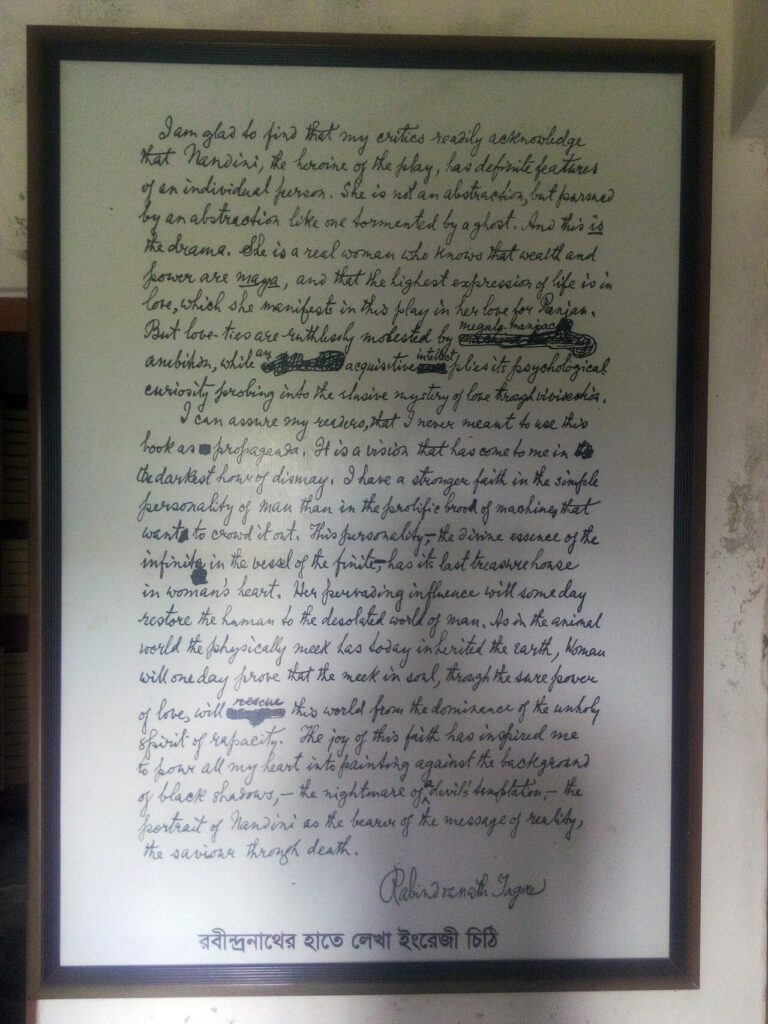 I am glad to find that my critics readily acknowledge
that Nandini, the heroine of the play, has definite features
of an individual person. She is not an abstraction, but pursued
by an abstraction like one tormented by a ghost. And this is
the drama. She is a real woman who knows that wealth and
power are maya, and that the highest expression of life is in
love, which she manifests in this play in her love for Ranjan.
But love-ties are ruthlessly molested by megalo-maniac
ambition, while an acquisitive intellect plies its psychological
curiosity probing into the elusive mystery of love through vivisection.
I can assure my readers, that I never meant to use this
book as propaganda. It is a vision that has come to me in
the darkest hour of dismay. I have a stronger faith in the simple
personality of man than in the prolific brood of machines that
want to crowd it out. This personality,– the divine essence of the
infinite in the vessel of the finite,– has its last treasure house
in woman's heart. Her pervading influence will some day
restore the human to the desolated world of man. As in the animal
world the physically meek has today inherited the earth, Woman
will one day prove that the meek in soul, through the sure power
of love, will rescue this world from the dominance of the unholy
spirit of rapacity. The joy of this faith has inspired me
to pour all my heart into painting against the background
of black shadows,– the nightmare of a devil's temptation,– the
portrait of Nandini as the bearer of the message of reality,
the saviour through death.
Rabindranath Tagore
রবীন্দ্রনাথের হাতে লেখা ইংরেজী চিঠি